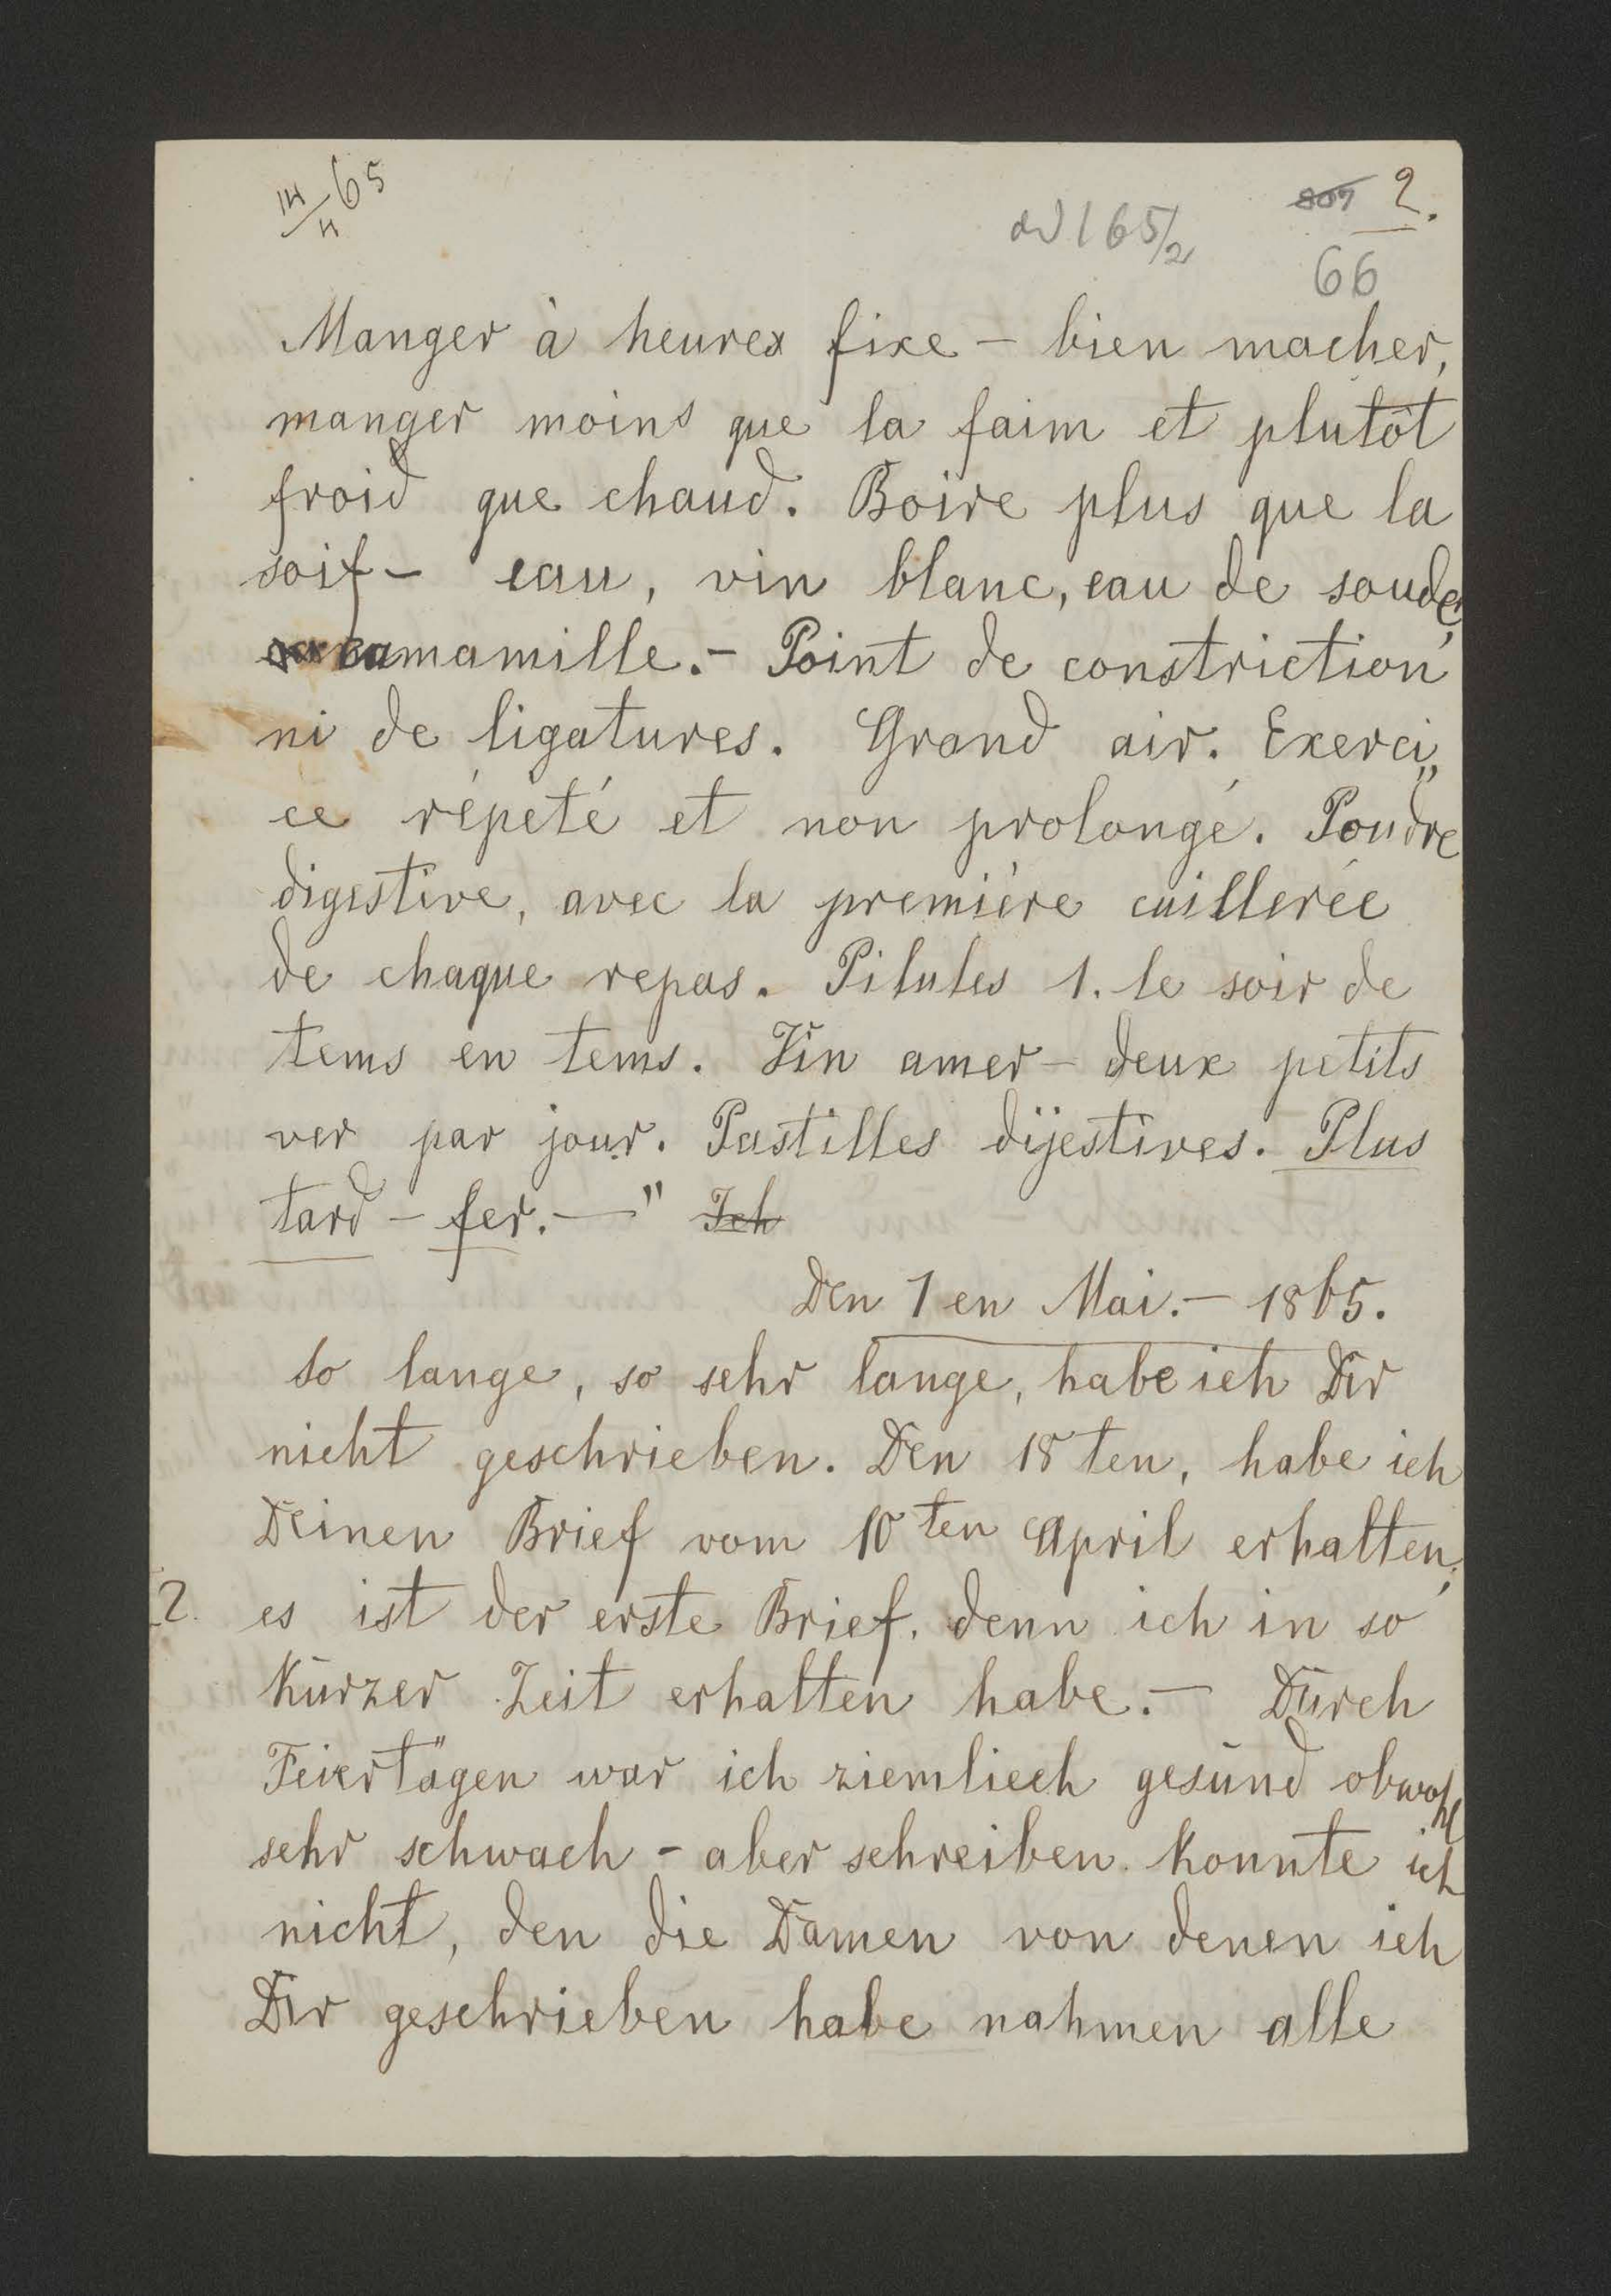 14/4 65
807 2.
ad 165/2
66
Manger à heures fixe – bien macher,
manger moins que la faim et plutôt
froid que chaud. Boire plus que la
soif – eau, vin blanc, eau de soude,
camamille. – Point de constriction
ni de ligatures. Grand air. Exerci„
ce répeté et non prolongé. Poudre
digestive, avec la première cuillerée
de chaque repas. Pilules 1. le soir de
tems en tems. Vin amer – deux petits
ver par jour. Pastilles dijestives. Plus
tard – fer. —" Ich
Den 1 en Mai. – 1865.
So lange, so sehr lange, habe ich Dir
nicht geschrieben. Den 18 ten, habe ich
Deinen Brief vom 10 ten April erhalten,
2. es ist der erste Brief, denn ich in so
kurzer Zeit erhalten habe. – Durch
Feiertägen war ich ziemliech gesund obwohl
sehr schwach – aber schreiben konnte ich
nicht, den die Damen von denen ich
Dir geschrieben habe nahmen alle